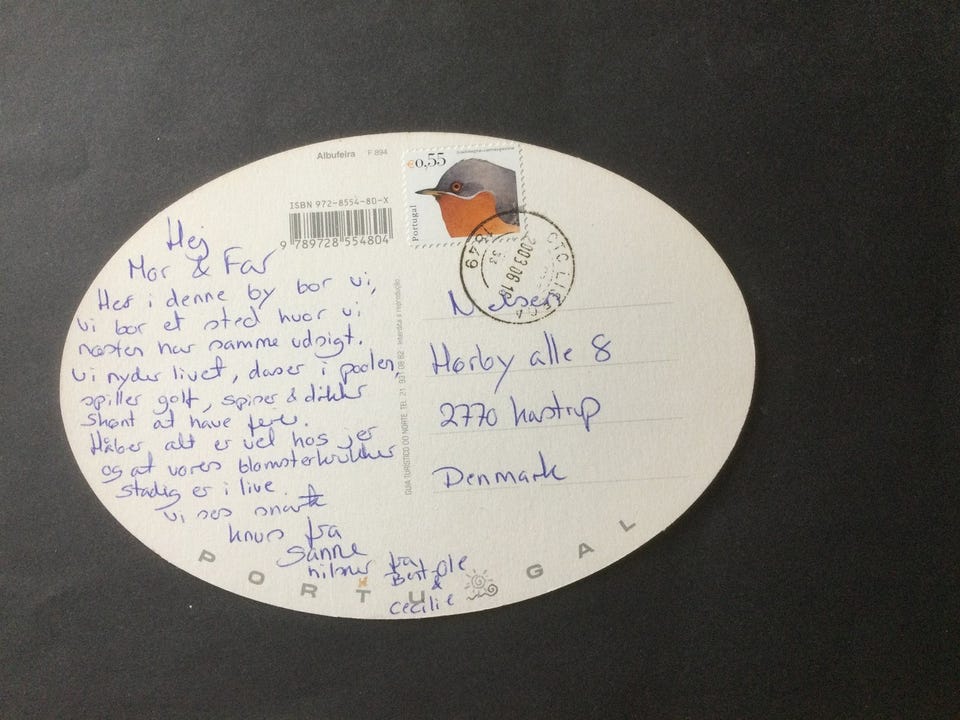 Albufeira F 894
ISBN 972-8554-80-X
9 789728 554804
€0,55
Portugal
1849
2003.06.18
33
Hej
Mor & Far
Her i denne by bor vi,
vi bor et sted hvor vi
næsten har samme udsigt.
Vi nyder livet, daser i poolen,
spiller golf, spiser & drikker
skønt at have ferie.
Håber alt er vel hos jer
og at vores blomsterkrukker
stadig er i live.
Vi ses snart
knus fra
Sanne
hilsner fra
Bent-Ole
&
Cecilie
GUIA TURÍSTICO DO NORTE TEL. 21 931 08 82 Interdita a reprodução
Nielsen
Hørby alle 8
2770 Kastrup
Denmark
PORTUGAL